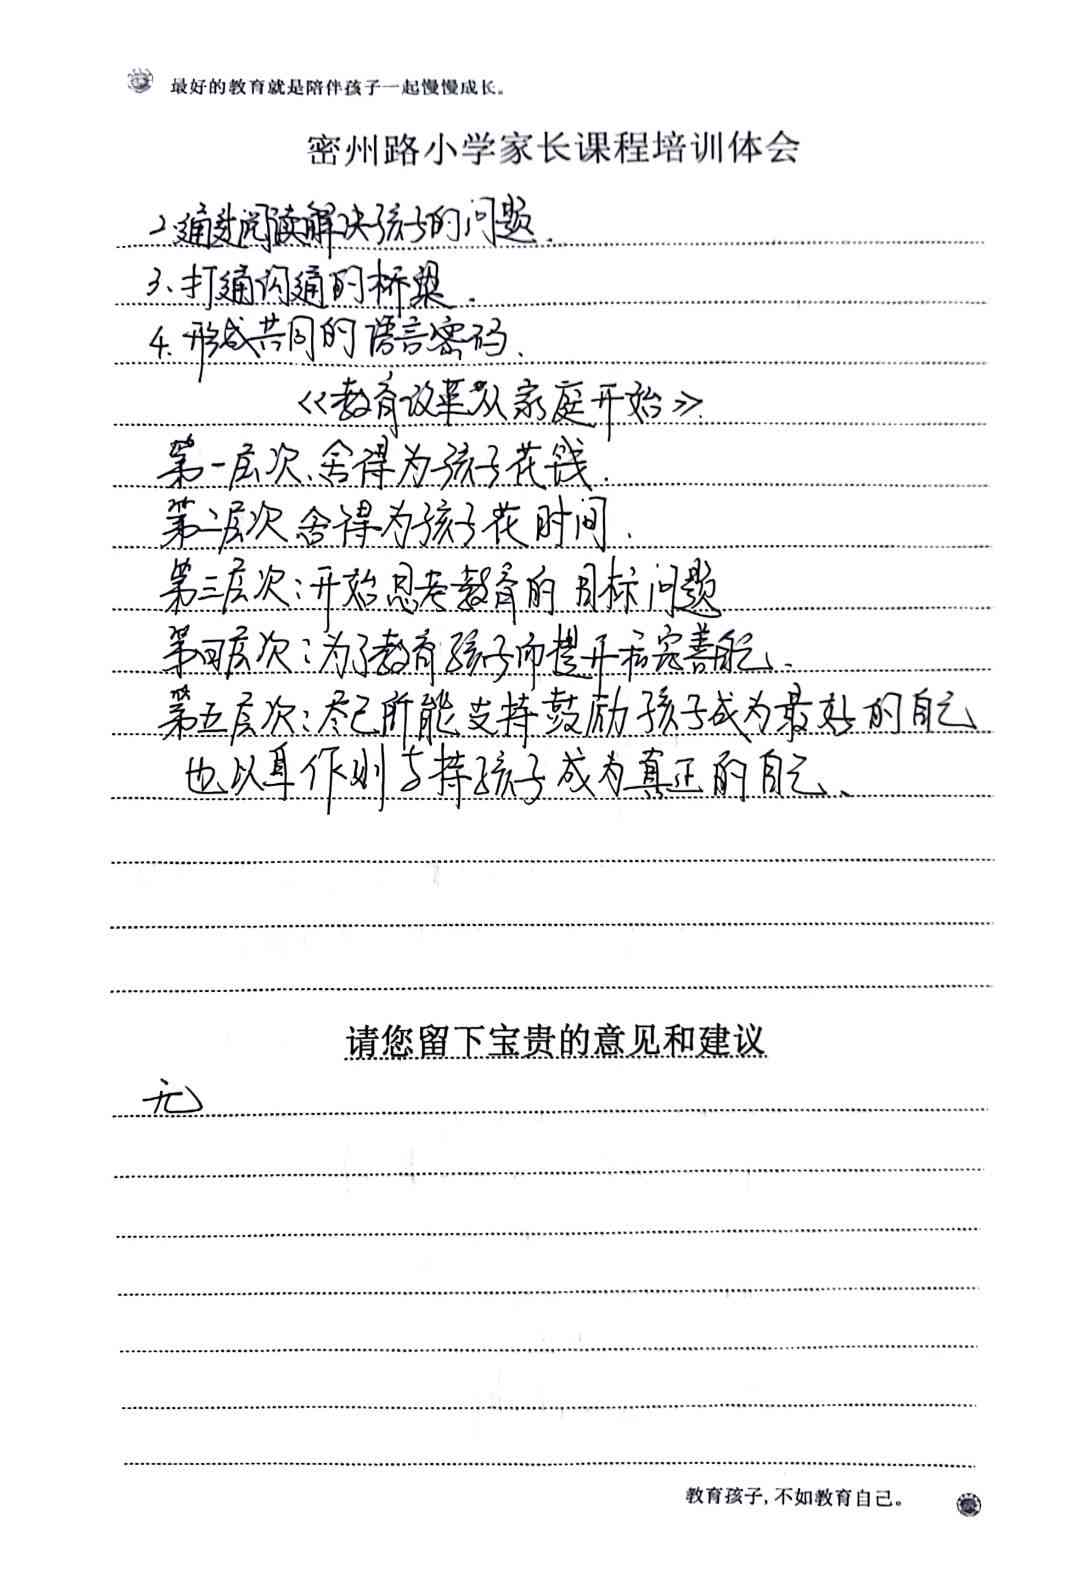 最好的教育就是陪伴孩子一起慢慢成长。
密州路小学家长课程培训体会
2.通过阅读解决孩子的问题.
3、打通沟通的桥梁.
4.形成共同的语言密码.
《教育改革从家庭开始》.
第一层次、舍得为孩子花钱.
第二层次舍得为孩子花时间.
第三层次：开始思考教育的目标问题
第四层次：为了教育孩子而提升和完善自己、
第五层次：尽己所能支持鼓励孩子成为最好的自己
也以身作则支持孩子成为真正的自己、
请您留下宝贵的意见和建议
无
教育孩子，不如教育自己。